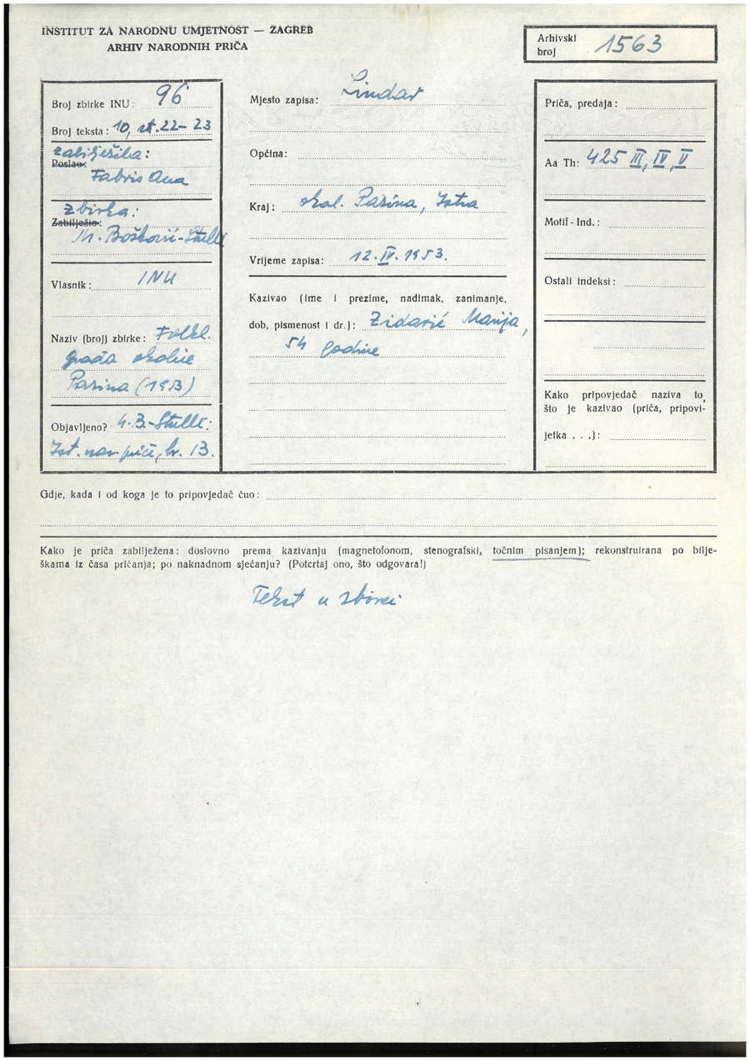 INSTITUT ZA NARODNU UMJETNOST — ZAGREB
ARHIV NARODNIH PRIČA
Arhivski broj 1563
Broj zbirke INU: 96
Broj teksta: 10, st. 22-23
Zabilježila:
Poslao:
Fabris Ana
Zbirka:
Zabilježio:
M. Bošković-Stulli
Vlasnik: INU
Naziv (broj) zbirke: Folkl.
građa okolice
Pazina (1953)
Objavljeno? M.B.-Stulli:
Ist. nar. priče, br. 13.
Mjesto zapisa: Lindar
Općina:
Kraj: okol. Pazina, Istra
Vrijeme zapisa: 12. IV. 1953.
Kazivao (ime i prezime, nadimak, zanimanje,
dob, pismenost i dr.): Zidarić Marija,
54 godine
Priča, predaja:
Aa Th: 425 III, IV, V
Motif-Ind.:
Ostali indeksi:
Kako pripovjedač naziva to,
što je kazivao (priča, pripovi-
jetka . . .):
Gdje, kada i od koga je to pripovjedač čuo:
Kako je priča zabilježena: doslovno prema kazivanju (magnetofonom, stenografski, točnim pisanjem); rekonstruirana po bilje-
škama iz časa pričanja; po naknadnom sjećanju? (Potcrtaj ono, što odgovara!)
Tekst u zbirci